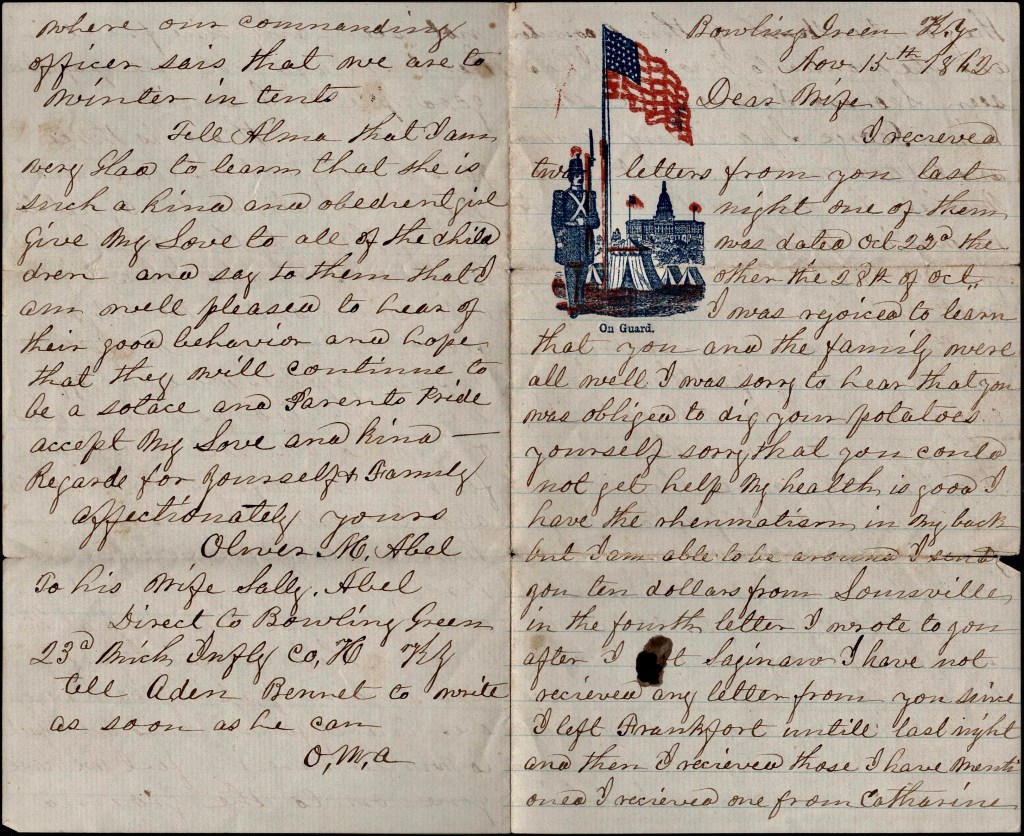 Bowling Green Ky.
Nov 15th 1862
Dear Wife
I recieved
two letters from you last
night one of them
was dated Oct 22d the
other the 28th of Oct.
On Guard.
I was rejoiced to learn
that you and the family were
all well I was sorry to hear that you
was obliged to dig your potatoes
yourself sorry that you could
not get help My health is good I
have the rheumatism in My back
but I am able to be around I send
you ten dollars from Louisville
in the fourth letter I wrote to you
after I Saginaw I have not
recieved any letter from you since
I left Frankfort untill last night
and then I recieved those I have menti
oned I recieved one from Catharine
where our commanding
officer sais that we are to
Winter in tents
Tell Alma that I am
very Glad to learn that she is
such a kind and obedient girl
Give My Love to all of the child
dren and say to them that I
am well pleased to hear of
their good behavior and hope
that they will continue to
be a solace and Parents Pride
accept My Love and kind —
Regards for yourself & Family
affectionately yours
Oliver M. Abel
To his Wife Sally. Abel
Direct to Bowling Green
23d Mich Inftry Co, H Ky
tell Aden Bennet to write
as soon as he can
O, M, A